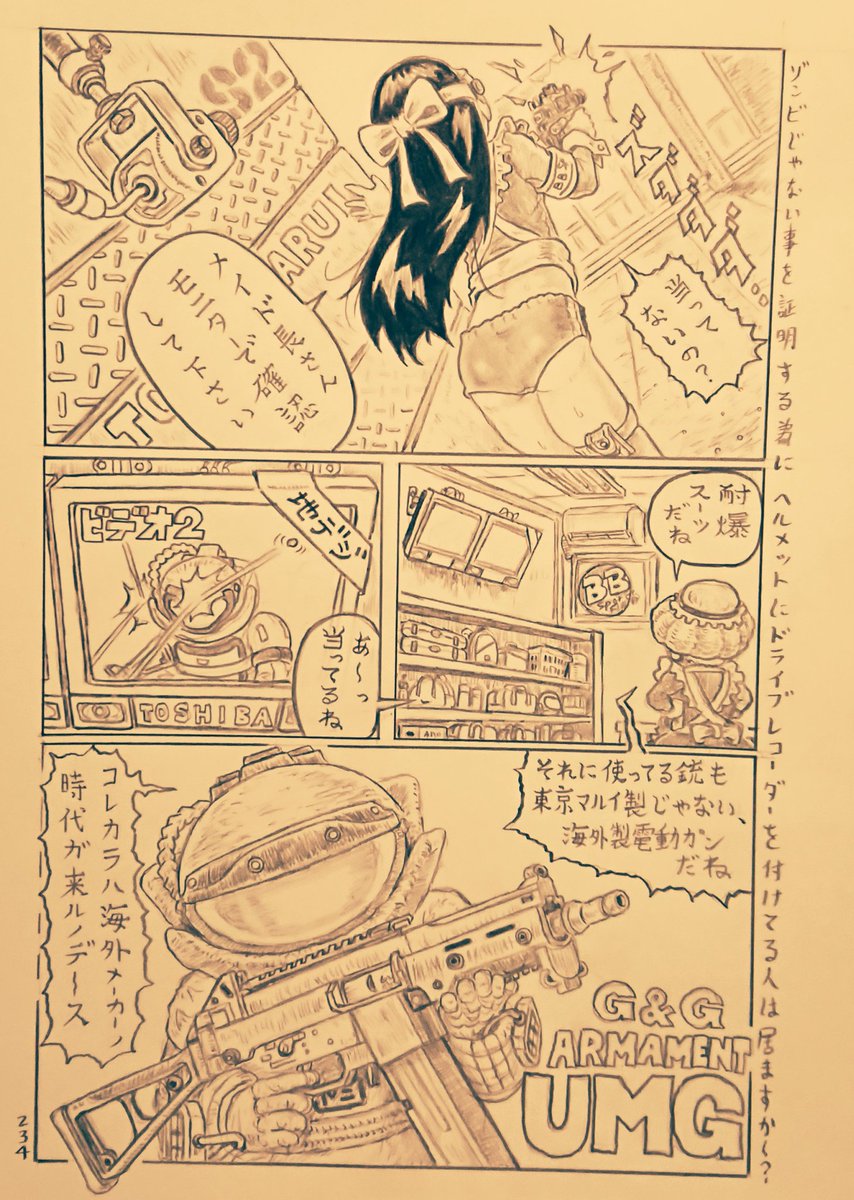 ゾンビじゃない事を証明する為にヘルメットにドライブレコーダーを付けてる人は居ますか〜?
当って
ないの?
メイド長さん
モニターで確認
して下さい
ARUI
TO
耐爆
スーツ
だね
BB
ビデオ2
地デジ
TOSHIBA
あ〜っ
当ってるね
それに使ってる銃も
東京マルイ製じゃない、
海外製電動ガン
だね
コレカラハ海外メーカーノ
時代が来ルノデース
G&G
ARMAMENT
UMG
234